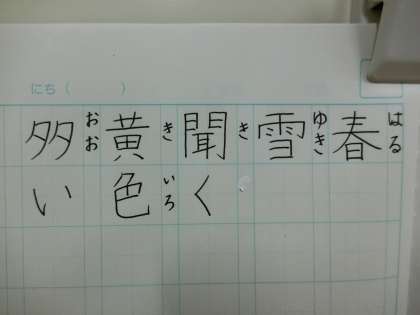 にち（　　　）
春 はる
雪 ゆき
聞く き
黄色 きいろ
多い おお